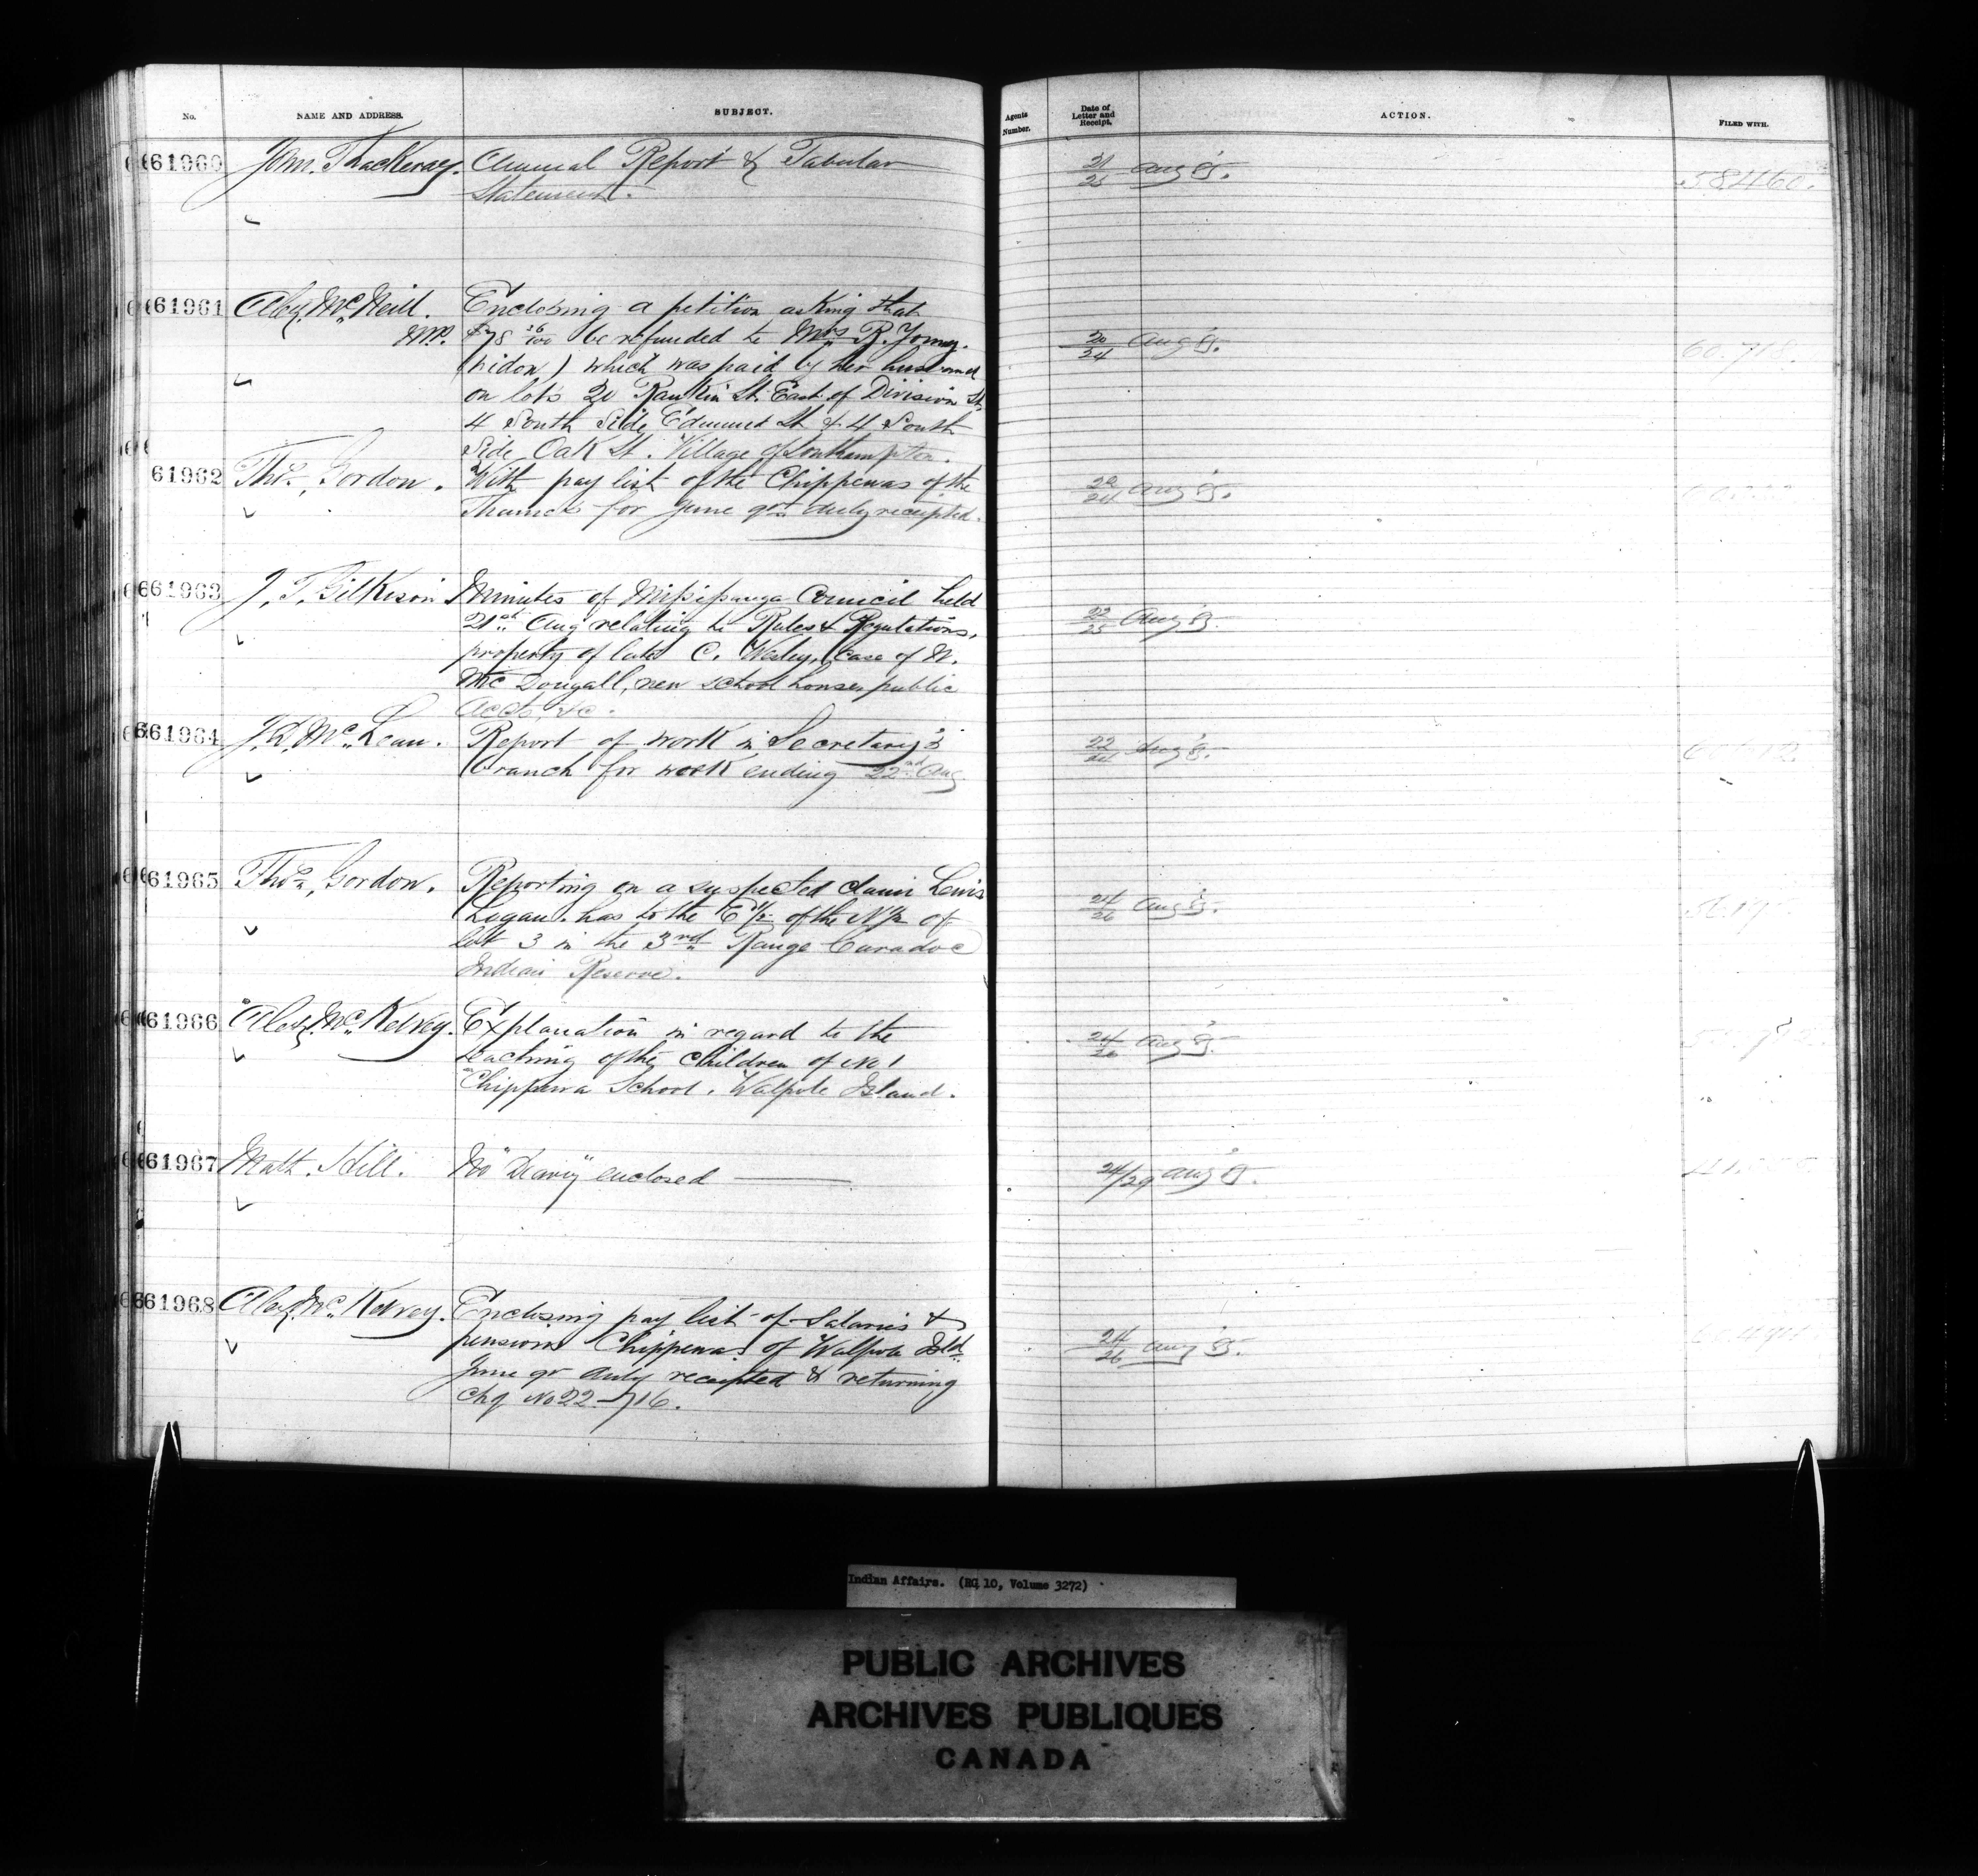 No. NAME AND ADDRESS. SUBJECT. Agents Number. Date of Letter and Receipt. ACTION. FILED WITH.
61960 John. Thackeray. Annual Report & Tabular 21/25 Aug 85. 58460.
Statement.
61961 Alex. McNeill. Enclosing a petition asking that
M.P. $78 26/100 be refunded to Mrs R. Young. 20/24 Aug 85. 60.718.
(widow) which was paid by her husband
on lots 20 Rankin St. East of Division St,
4 South Side Edmund St & 4 South
Side Oak St. Village of Southampton.
61962 Thos. Gordon. With pay list of the Chippewas of the 22/24 Aug 85.
Thames for June qr. duly receipted.
61963 J. T. Gilkison Minutes of Missisauga Council held
21st Aug relating to Rules & Regulations, 22/25 Aug 85.
property of late C. Wesley, case of W.
McDougall, new school houses, public
accts, &c.
61964 J. D. McLean. Report of work in Secretary's 22/24 Aug 85.
branch for week ending 22nd Aug
61965 Thos. Gordon. Reporting on a suspected claim Lewis
Logan. has to the E 1/2 of the N 1/2 of 24/26 Aug 85.
lot 3 in the 3rd Range Caradoc
Indian Reserve.
61966 Alex. McKelvey. Explanation in regard to the 24/26 Aug 85.
teaching of the children of No 1
Chippewa School. Walpole Island.
61967 Matt. Hill. No "Deary" enclosed 24/29 Aug 85.
61968 Alex. McKelvey. Enclosing pay list of Salaries &
pensions Chippewas of Walpole Isld. 24/26 Aug 85.
June qr duly receipted & returning
Chq No 22-716.
Indian Affairs. (RG 10, Volume 3272)
PUBLIC ARCHIVES
ARCHIVES PUBLIQUES
CANADA